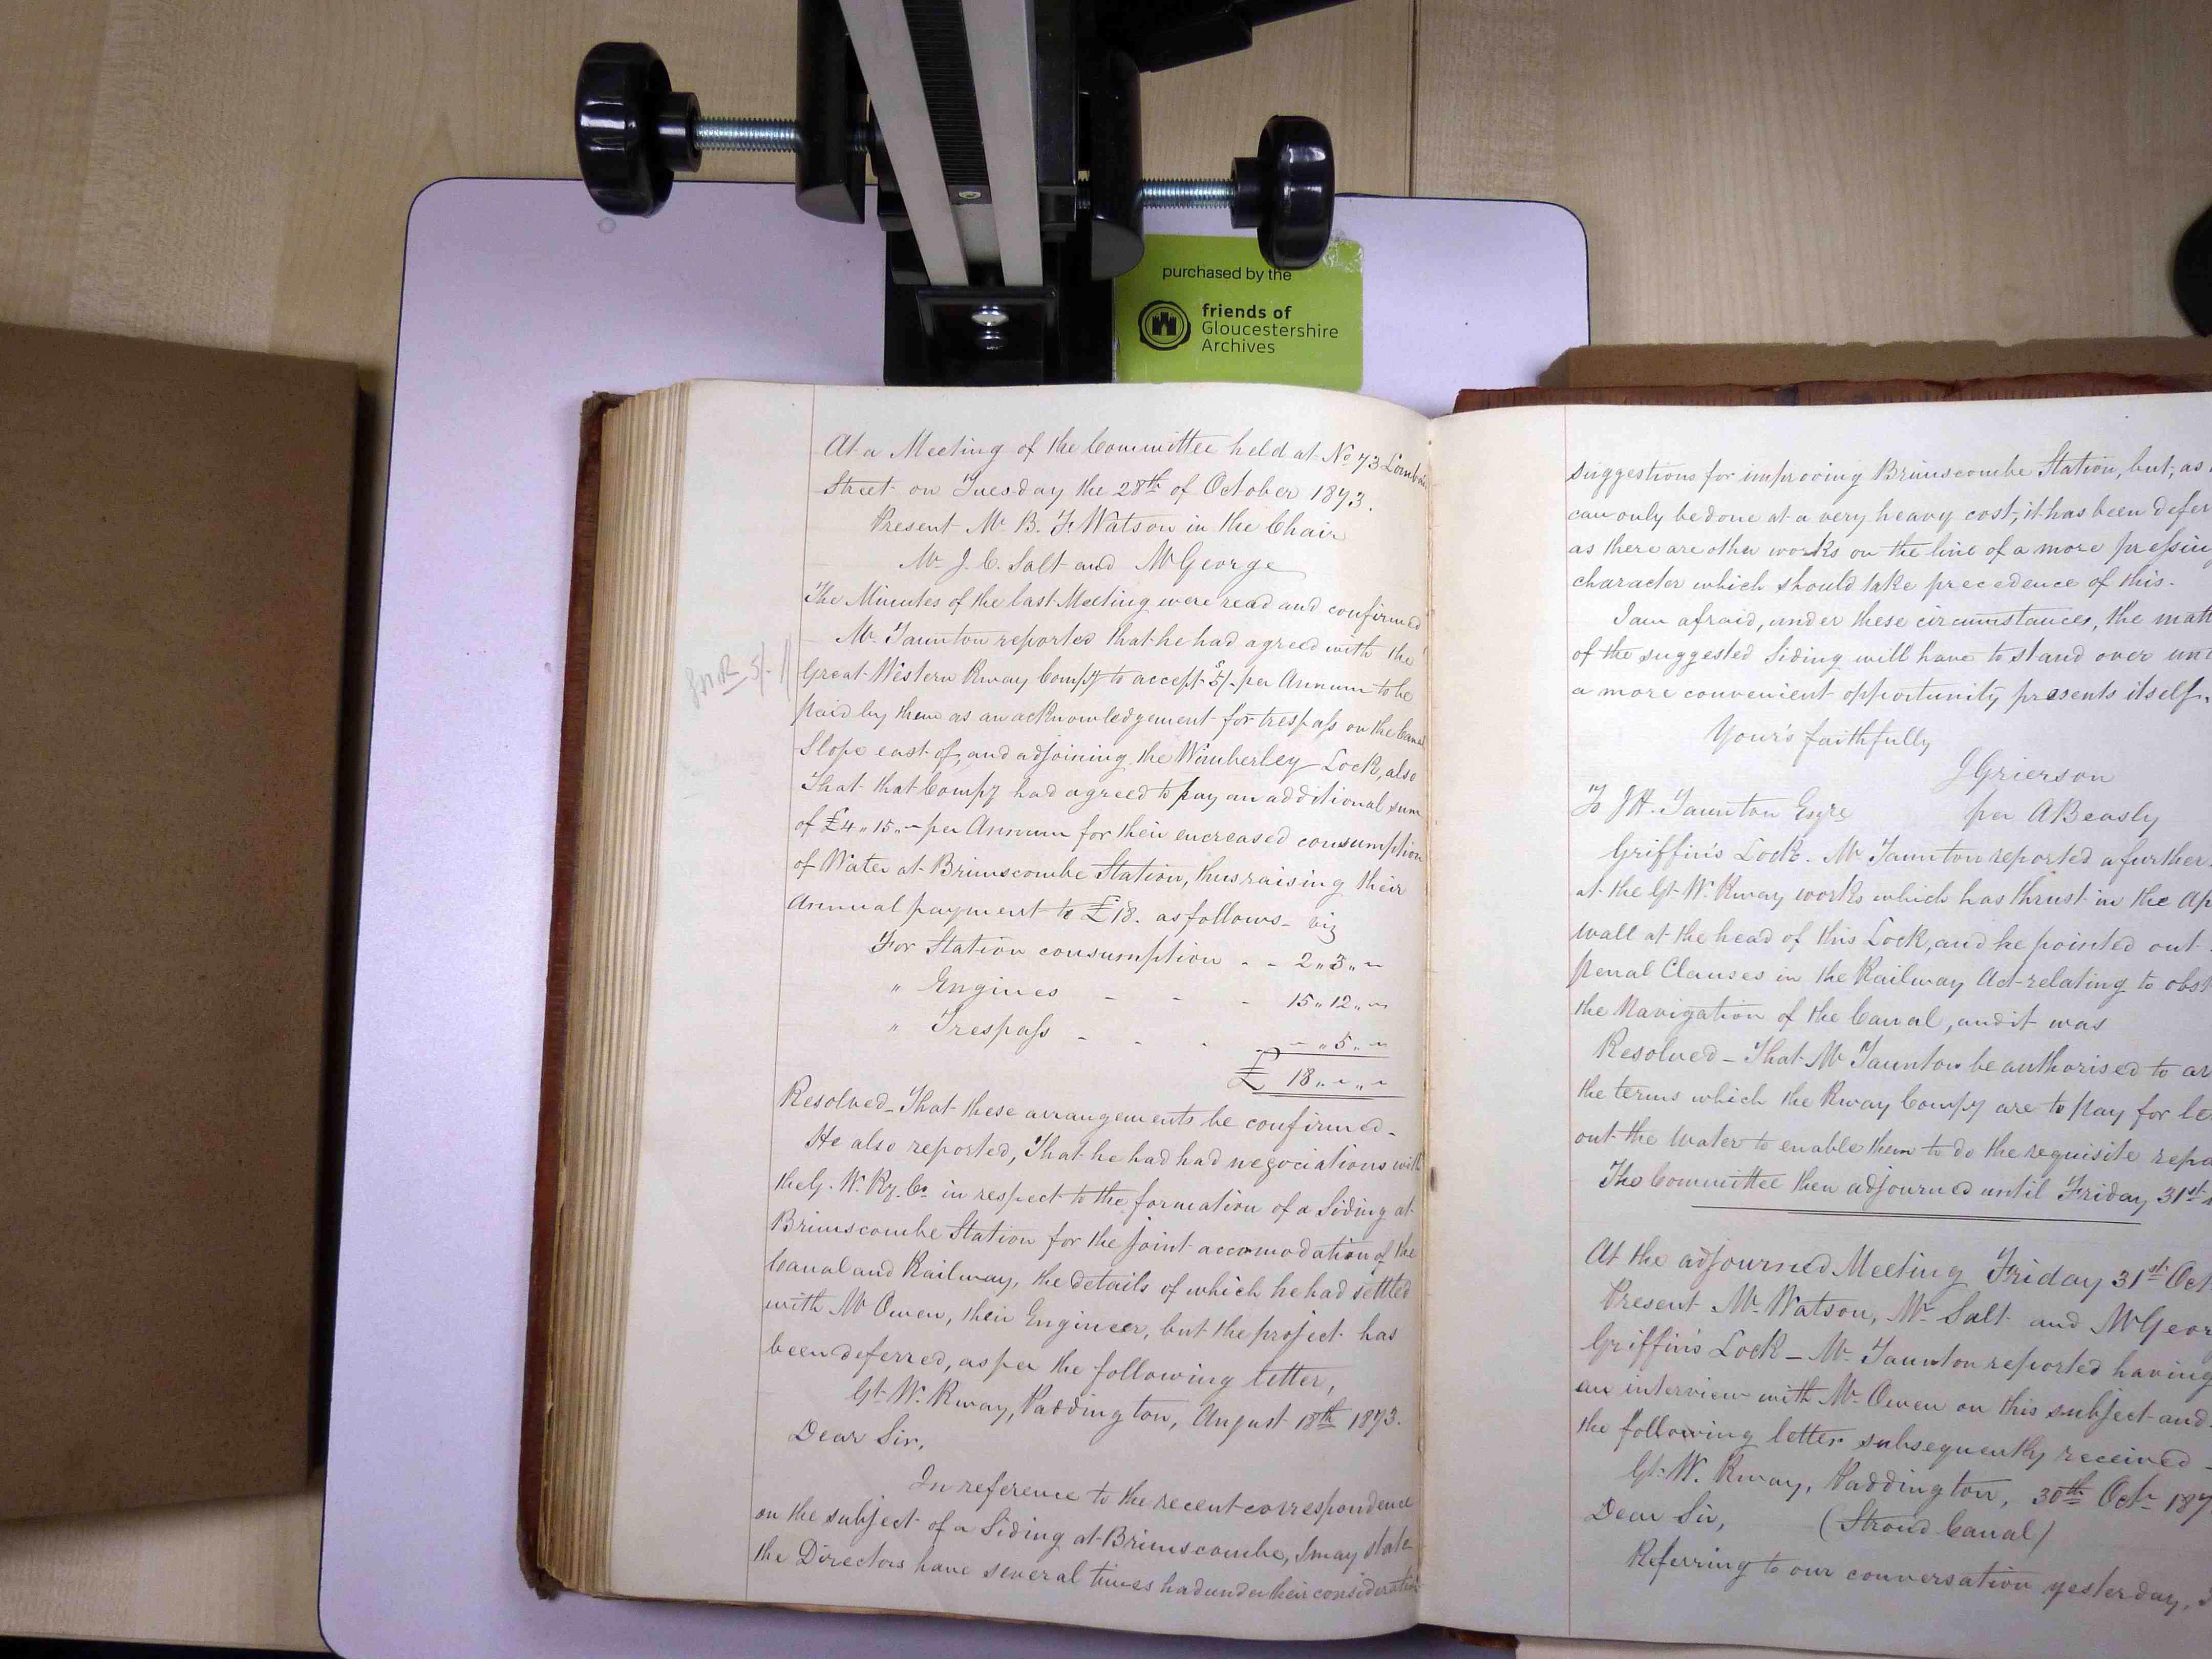 purchased by the
friends of
Gloucestershire
Archives
At a Meeting of the Committee held at No 73 Lombard
Street on Tuesday the 28th of October 1873.
Present Mr B. F. Watson in the Chair
Mr J. C. Salt and Mr George
The Minutes of the last Meeting were read and confirmed
Mr Taunton reported that he had agreed with the
G W R 5/-
Great Western Rway Compy to accept 5/- per Annum to be
paid by them as an acknowledgement for trespass on the Canal
Slope east of, and adjoining the Wimberley Lock, also
That that Compy had agreed to pay an additional sum
of £4 " 15 " - per Annum for their encreased consumption
of Water at Brimscombe Station, thus raising their
Annual payment to £18. as follows - viz
For Station consumption - - 2 " 3 " -
" Engines - - - 15 " 12 " -
" Trespass - - - - " 5 " -
£ 18 " - " -
Resolved - That these arrangements be confirmed -
He also reported, That he had had negociations with
the G. W. Ry. Co. in respect to the formation of a Siding at
Brimscombe Station for the joint accomodation of the
Canal and Railway, the details of which he had settled
with Mr Owen, their Engineer, but the project has
been deferred, as per the following letter,
Gt. W. Rway, Paddington, August 18th 1873.
Dear Sir,
In reference to the recent correspondence
on the subject of a Siding at Brimscombe, I may state
the Directors have several times had under their consideration
suggestions for improving Brimscombe Station, but, as
can only be done at a very heavy cost, it has been defer
as there are other works on the line of a more pressin
character which should take precedence of this.
I am afraid, under these circumstances, the matt
of the suggested Siding will have to stand over unt
a more convenient opportunity presents itself.
Your's faithfully
J Grierson
To J H. Taunton Esqre per A Beasly
Griffin's Lock. Mr Taunton reported a further
at the Gt. W. Rway works which has thrust in the Ap
wall at the head of this Lock, and he pointed out
penal Clauses in the Railway Act relating to obst
the Navigation of the Canal, and it was
Resolved - That Mr Taunton be authorised to ar
the terms which the Rway Compy are to pay for le
out the Water to enable them to do the requisite repa
The Committee then adjourned until Friday 31st
At the adjourned Meeting Friday 31st Oct
Present Mr Watson, Mr Salt and Mr Geor
Griffin's Lock - Mr Taunton reported having
an interview with Mr Owen on this subject and
the following letter subsequently received -
Gt. W. Rway, Paddington, 30th Oct 187
Dear Sir, (Stroud Canal)
Referring to our conversation yesterday,